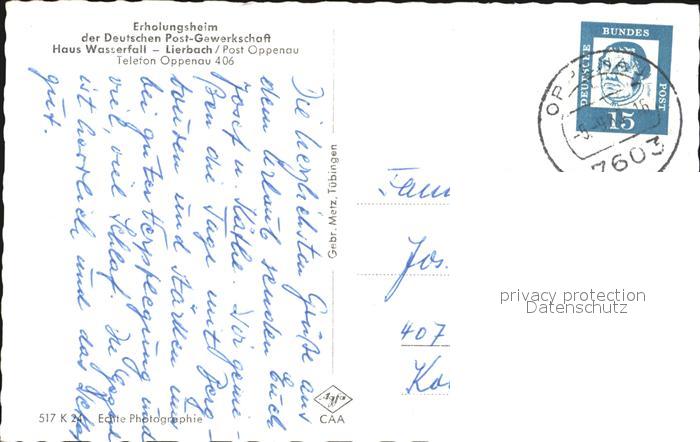 Erholungsheim
der Deutschen Post-Gewerkschaft
Haus Wasserfall – Lierbach / Post Oppenau
Telefon Oppenau 406
Die herzlichsten Grüße aus
dem Urlaub senden Euch
Josef u. Käthe. Wir genie-
ßen die Tage mit Berg-
touren und stärken uns
bei guter Verpflegung und
viel, viel Schlaf. Die Gegend
ist herrlich und das
gut.
Gebr. Metz, Tübingen
517 K 24 Echte Photographie
Agfa
CAA
DEUTSCHE
BUNDES
POST
15
OPPENAU
7603
Fam
Jos.
407
privacy protection
Datenschutz